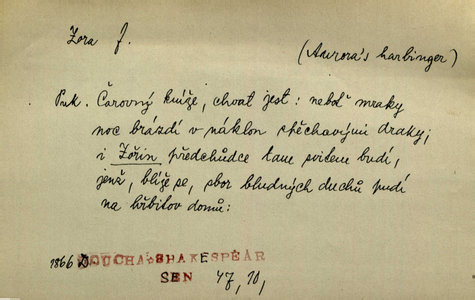 Zora f.
(Aurora's harbinger)
Puk. Čarovný kníže, chvat jest: neboť mraky
noc brázdí v náklon stěchavými draky;
i Zořin předchůdce tam svitem budí,
jenž, blíže se, sbor bludných duchů pudí
na hřbitov domů:
1866 DOUCHA: SHAKESPEAR
SEN 47, 10,